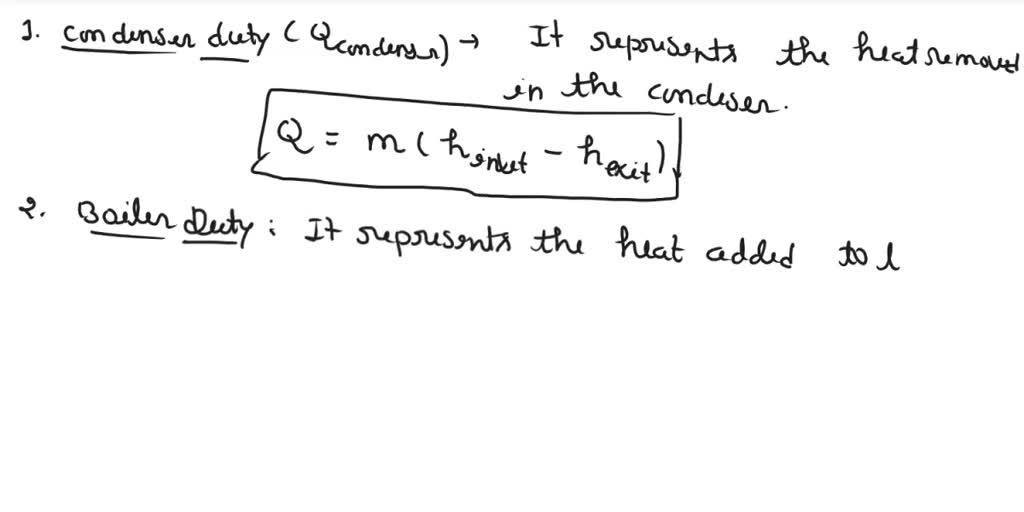 1. Condenser duty (Qcondenser) → It represents the heat removed
in the condeser.
Q = m (hinlet - hexit)
2. Boiler Duty : It represents the heat added to l